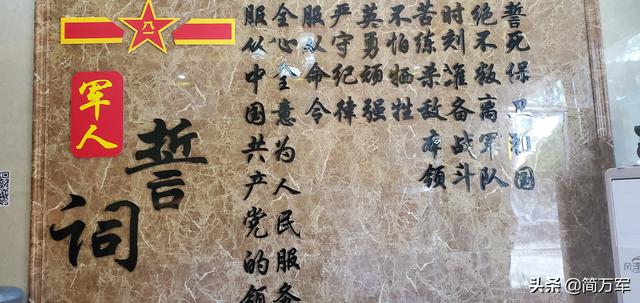 八一
军人
誓词
服从中国共产党的领
全心全意为人民服务
服从命令
严守纪律
英勇顽强
不怕牺牲
苦练杀敌本领
时刻准备战斗
绝不叛离军队
誓死保卫祖国
头条 @简万军